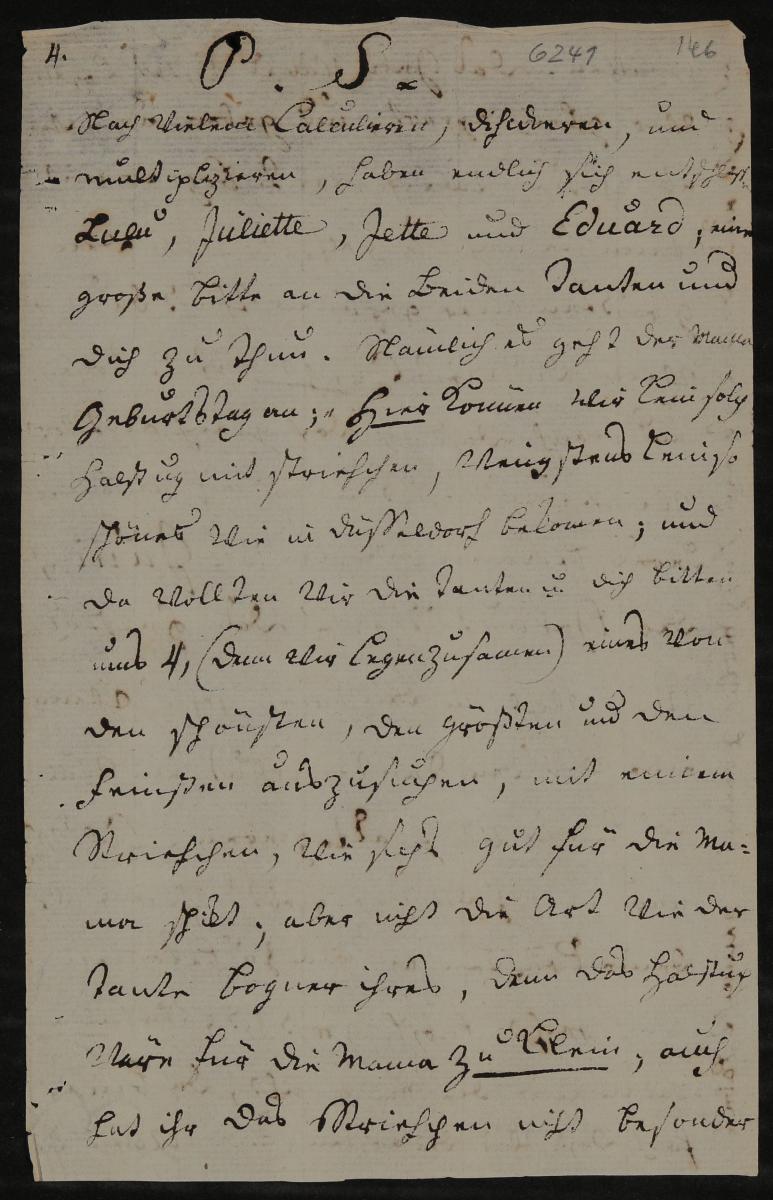 4.
P. S.
6241
146
Nach vielem Calculieren, dividieren, und
multiplizieren, haben endlich sich entschloß
Lulu, Juliette, Jette und Eduard, eine
große bitte an die beiden Tanten und
dich zu thun. Nämlich es geht der Mama
Geburtstag an; hier können wir kein solch
Halstuch mit streifchen, wenigstens kein so
schönes wie in Düsseldorf bekomen; und
da wollten wir die Tanten u dich bitten
uns 4, (denn wir legen zusamen) eines von
den schönsten, den größten und den
feinsten auszusuchen, mit einem
Streifchen, wie sichs gut für die Ma=
ma schikt; aber nicht die Art wie der
Tante Bogner ihres, denn das Halstuch
wäre für die Mama zu klein; auch
hat ihr das Streifchen nicht besonder